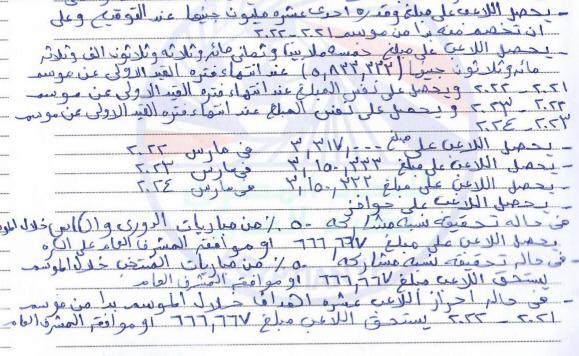 - يحصل اللاعب على مبلغ وقدره احدى عشره مليون جنيها عند التوقيع وعلى
ان تخصم منه بدا من موسم ٢٠٢١-٢٠٢٢
- يحصل اللاعب على مبلغ خمسه ملايينا وثمانى مائه وثلاثه وثلاثون الف وثلاثه
مائه وثلاثون جنيها (٥,٨٣٣,٣٣٣) عند انتهاء فتره القيد الاولى عن موسم
٢٠٢١-٢٠٢٢ ويحصل على نفس المبلغ عند انتهاء فتره القيد الاولى عن موسم
٢٠٢٢-٢٠٢٣ ويحصل على نفس المبلغ عند انتهاء فتره القيد الاولى عن موسم
٢٠٢٣-٢٠٢٤
- يحصل اللاعب على مبلغ ٣,٣١٧,٠٠٠ فى مارس ٢٠٢٢
- يحصل اللاعب على مبلغ ٣,١٥٠,٣٣٣ فى مارس ٢٠٢٣
- يحصل اللاعب على مبلغ ٣,١٥٠,٣٣٣ فى مارس ٢٠٢٤
- يحصل اللاعب على حوافز
فى حاله تحقيقه نسبه مشاركه ٥٠٪ من مباريات الدورى والكاس خلال الموسم
يحصل اللاعب على مبلغ ٦٦٦,٦٦٧ او موافقه المشرف العام على الكره
- فى حاله تحقيقه نسبه مشاركه ٥٠٪ من مباريات المنتخب خلال الموسم
يستحق اللاعب مبلغ ٦٦٦,٦٦٧ او موافقه المشرف العام
- فى حاله احراز اللاعب عشره اهداف خلال الموسم بدا من موسم
٢٠٢١-٢٠٢٢ يستحق اللاعب مبلغ ٦٦٦,٦٦٧ او موافقه المشرف العام